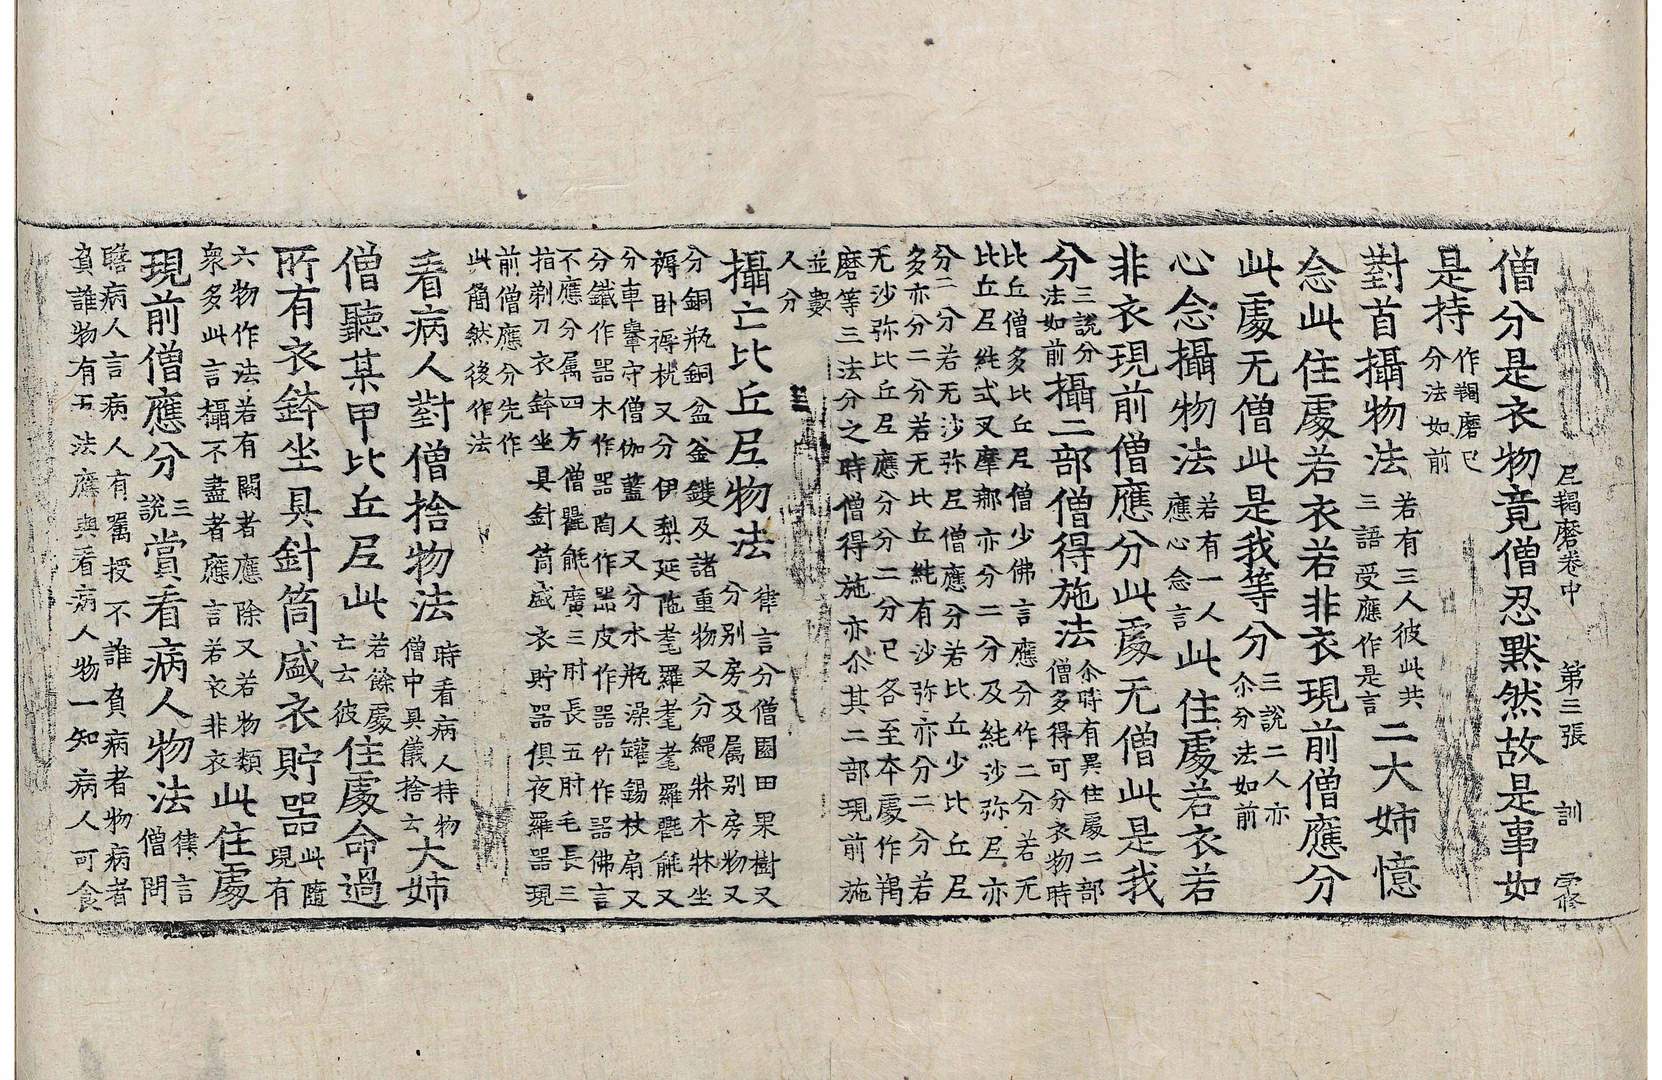 尼羯磨卷中 第三張 訓
僧分是衣物竟僧忍默然故是事如
是持 作羯磨已
分法如前
對首攝物法 若有三人彼此共
三語受應作是言 二大姉憶
念此住處若衣若非衣現前僧應分
此處无僧此是我等分 三說二人亦
尒分法如前
心念攝物法 若有一人
應心念言 此住處若衣若
非衣現前僧應分此處无僧此是我
分 三說分
法如前 攝二部僧得施法 尒時有異住處二部
僧多得可分衣物時
比丘僧多比丘尼僧少佛言應分作二分若无
比丘尼純式叉摩那亦分二分及純沙弥尼亦
分二分若无沙弥尼僧應分若比丘少比丘尼
多亦分二分若无比丘純有沙弥亦分二分若
无沙弥比丘尼應分分二分已各至本處作羯
磨等三法分之時僧得施亦尒其二部現前施
並數
人分
攝亡比丘尼物法 律言分僧園田果樹又
分別房及属别房物又
分銅瓶銅盆釜鑊及諸重物又分繩牀木牀坐
褥卧褥枕又分伊梨延陁耄羅耄耄羅氍毹又
分車轝守僧伽藍人又分水瓶澡罐錫杖扇又
分鐵作器木作器陶作器皮作器竹作器佛言
不應分属四方僧氍毹廣三肘長五肘毛長三
指剃刀衣鉢坐具針筒盛衣貯器俱夜羅器現
前僧應分先作
此簡然後作法
看病人對僧捨物法 時看病人持物
僧中具儀捨云 大姉
僧聽某甲比丘尼此 若餘處
亡云彼 住處命過
所有衣鉢坐具針筒盛衣貯器 此隨
現有
六物作法若有闕者應除又若物類
衆多此言攝不盡者應言若衣非衣 此住處
現前僧應分 三
說 賞看病人物法 律言
僧問
瞻病人言病人有囑授不誰負病者物病者
負誰物有五法應與看病人物一知病人可食